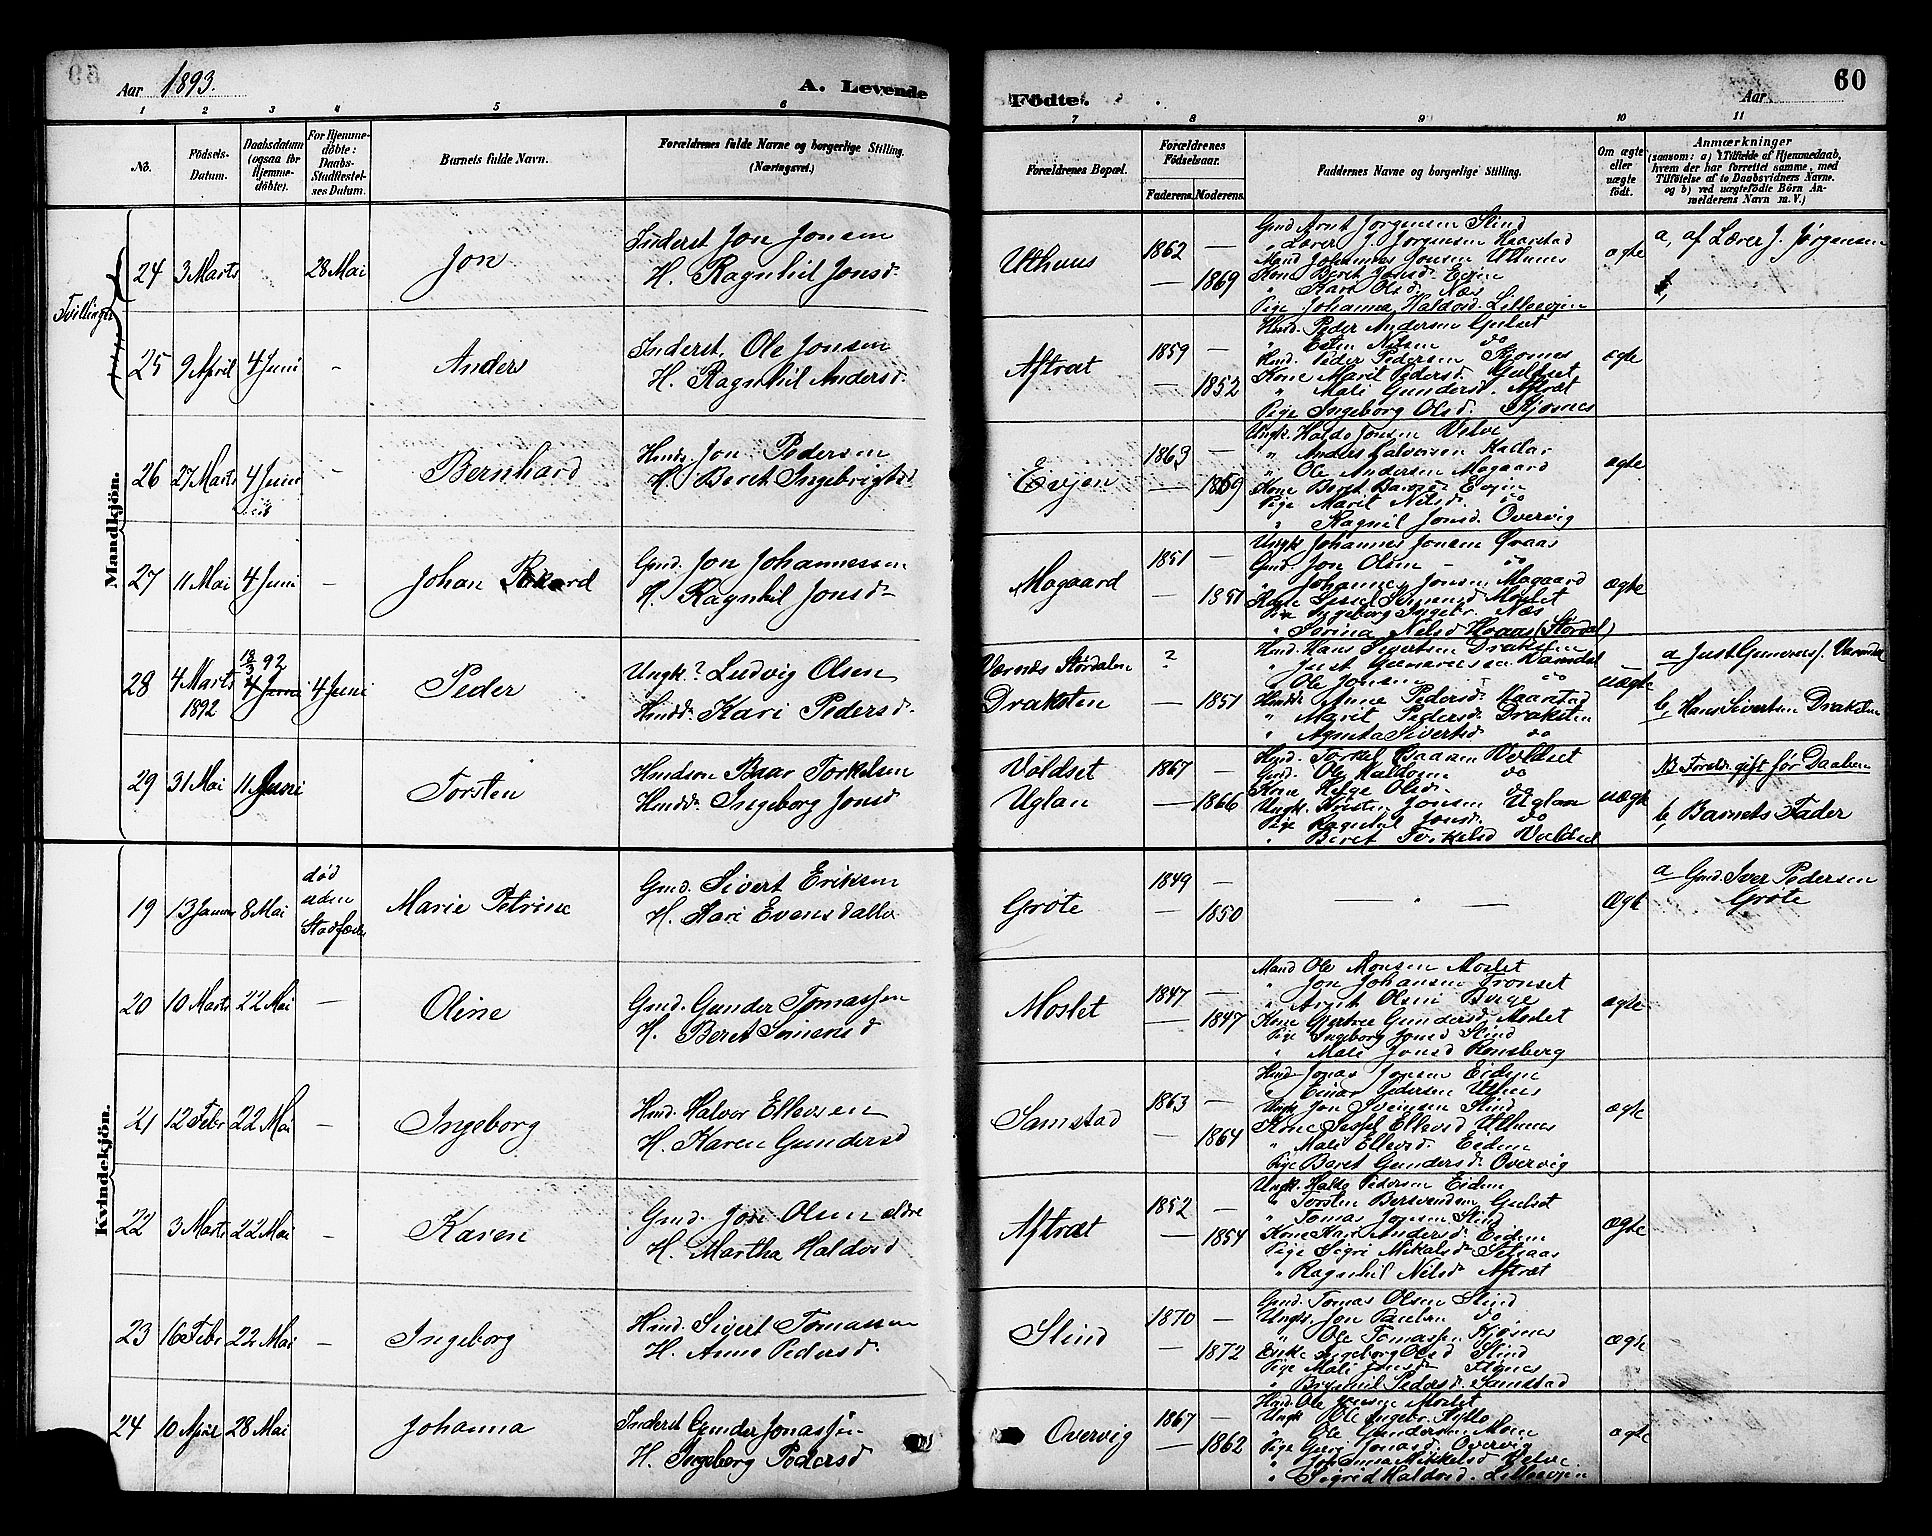 Aar 1893.
A. Levende
Födte.
Aar
60
1 2 3 4 5 6 7 8 9 10 11
No.
Födsels-Datum.
Daabsdatum (ogsaa för Hjemmedöbte).
For Hjemmedöbte: Daabs-Stadfæstelses Datum.
Barnets fulde Navn.
Forældrenes fulde Navne og borgerlige Stilling. (Næringsvei.)
Forældrenes Bopæl.
Forældrenes Födselsaar.
Faderens. Moderens.
Faddernes Navne og borgerlige Stilling.
Om ægte eller uægte födt.
Anmærkninger
(saasom: a) i Tilfælde af Hjemmedaab, hvem der har forrettet samme, med Tilföielse af to Daabsvidners Navne. og b) ved uægtefödte Börn Anmelderens Navn m. V.)
Mandkjön.
Tvillinger
24 3 Marts 28 Mai Jon
Inderst Jon Jonsen
H. Ragnhil Jonsd.
Uthuus 1862 —
— 1869
Gmd. Arnt Jörgensen Slind
" Lærer J. Jörgensen Haarstad
Mand Johannes Jonsen Uthuus
Kone Beret Jonsd. Evjen
" Kari Olsd. Næs
Pige Johanna Haldosd. Lilleevjen
ægte
a, af Lærer J. Jørgensen
25 9 April 4 Juni - Anders
Inderst. Ole Jonsen
H. Ragnhil Andersd.
Aftræt 1859 —
— 1852
Hmd. Peder Andersen Gulset
" Esten Nilsen do
Hmd. Peder Pedersen Kjosnes
Kone Marit Pedersd. Gulset
" Mali Gundersd. Aftræt
Pige Ingeborg Olsd. Kjosnes
ægte
26 27 Marts 4 Juni - Bernhard
Hmd. Jon Pedersen
H. Beret Ingebrigtsd
Evjen 1863 —
— 1869
Ungk. Haldo Jonsen Velve
" Anders Halvorsen
" Ole Andersen Mogaard
Kone Beret Evjen
Pige Marit Nilsd. do
" Ragnil Jonsd. Overvig
ægte
27 11 Mai 4 Juni - Johan Rikard
Gmd. Jon Johannessen
H. Ragnhil Jonsd.
Mogaard 1851 —
— 1851
Ungk Johannes Jonsen Øraas
Gmd. Jon Olsen do
" Johannes Jonsen Mogaard
Kone Moslet
Pige Ingeborg Ingebr. Næs
" Serina Nilsd. (Stördal)
ægte
28 4 Marts 1892 13/3 92 4 Juni Peder
Ungk? Ludvig Olsen
Hmdd. Kari Pedersd.
Værnæs Stördalen ? —
Draksten — 1851
Hmd. Hans Sivertsen Draksten
" Just Gunerussen Vamdal
" Ole Jonsen do
Hmdd. Anne Pedersd. Haarstad
" Marit Pedersd. Draksten
" Agneta Sivertsd do
uægte
a Just Guneruss.
b, Hans Sivertsen Draksten
29 31 Mai 11 Juni Torsten
Hmdsøn Baar Torkelsen
Hmdd. Ingeborg Jonsd
Voldset 1867 —
Uglan — 1866
Hmd. Torkel Baarsen Voldset
Gmd. Ole Haldosen do
Kone Helge Olsd. do
Ungk. Kirsten Jonsen Uglan
Pige Ragnhil Jonsd. do
" Beret Torkelsd Voldset
uægte
NB Foreld. gift før Daaben
b, Barnets Fader
Kvindekjön.
19 13 Januar 8 Mai død uden Stadfæst. Marie Petrine
Gmd. Sivert Eriksen
H. Kari Evensdatter
Gröte 1849 —
— 1850
— " —
Ægte
a Gmd. Iver Pedersen
Gröte
20 10 Marts 22 Mai — Oline
Gmd. Gunder Tomassen
H. Beret Simensd
Moslet 1847 —
— 1847
Mand Ole Monsen Moslet
" Jon Johansen Tronset
" Arnt Olsen Berge
Kone Gjertru Gundersd. Moslet
Pige Ingeborg Jonsd Slind
" Mali Jonsd Rønsberg
ægte
21 12 Febr 22 Mai - Ingeborg
Hmd. Halvor Ellevsen
H. Karen Gundersd
Samstad 1863 —
— 1864
Hmd. Jonas Jonsen Eidem
" Einar Pedersen Uthuus
Ungk Jon Sveinsen Slind
Kone Sissel Ellevsd Uthuus
" Mali Ellevsd. Eidem
Pige Beret Gundersd. Overvig
ægte
22 3 Marts 22 Mai - Karen
Gmd. Jon Olsen eldre
H. Martha Haldosd
Aftræt 1852 —
— 1854
Ungk. Haldo Pedersen Eidem
" Torsten Bersvendsen Gulset
" Tomas Jonsen Slind
Kone Kari Andersd. Eidem
Pige Sigri Mikalsd. Selaas
" Ragnhil Nilsd. Aftræt
ægte
23 16 Febr 22 Mai - Ingeborg
Hmd. Sivert Tomassen
H. Anne Pedersd.
Slind 1870 —
— 1872
Gmd. Tomas Olsen Slind
Ungk. Jon Paulsen do
" Ole Tomassen Kjosnes
Enke Ingeborg Olsd Slind
Pige Mali Jonsd.
" Brynhil Pedersd. Samstad
ægte
24 10 April 28 Mai Johanna
Inderst Gunder Jonassen
H. Ingeborg Pedersd
Overvig 1867 —
— 1862
Hmd. Ole Jensen Moslet
Ungk Ole Ingebr. Hyllo
" Ole Gundersen Moen
Pige Guri Jonasd. Overvig
" Johanna Mikkelsd. Velve
" Sigrid Haldosd. Lilleevjen
ægte